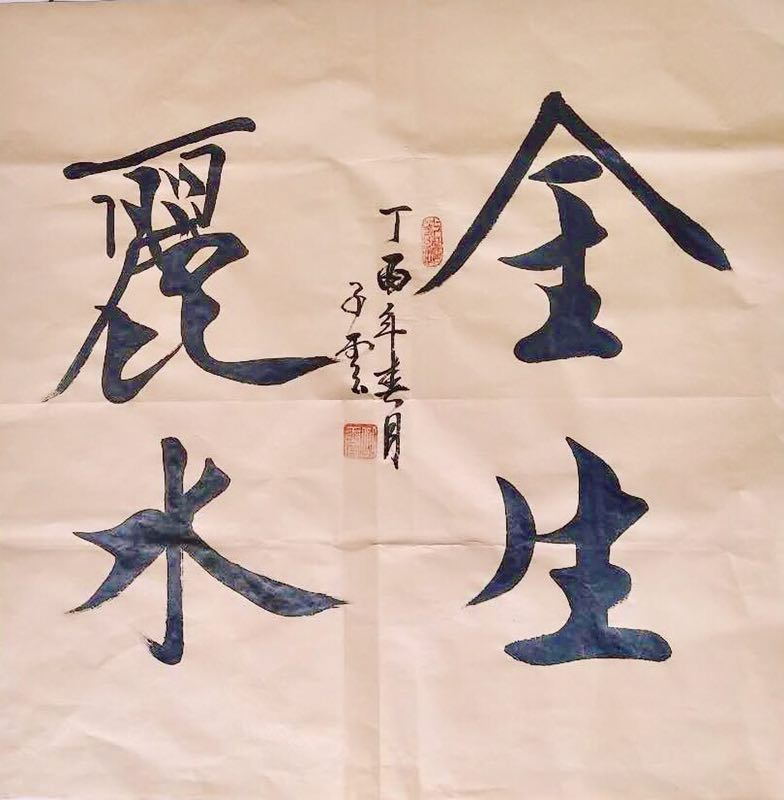 金生
麗水
丁酉年春月
子雲